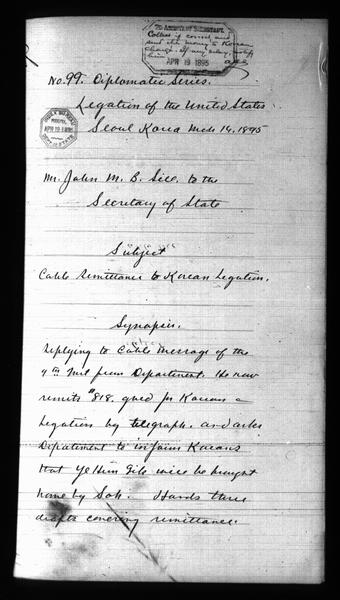 TO ASSISTANT SECRETARY.
Collect if correct and
send the money to Korean
Chargé. If any delay, notify
him. AAA
APR 19 1895
No. 99. Diplomatic Series.
BUREAU
APR 19 1895
DEPT. OF STATE
Legation of the United States
Seoul Korea Mch 14, 1895
Mr. John M. B. Sill to the
Secretary of State
Subject
Cable Remittance to Korean Legation.
Synopsis.
Replying to Cable message of the
9th inst from Department. He now
remits $818. gold for Korean
Legation by telegraph. and asks
Department to inform Koreans
that Ye Hun Sik will be brought
home by Soh. Hands three
drafts covering remittance.